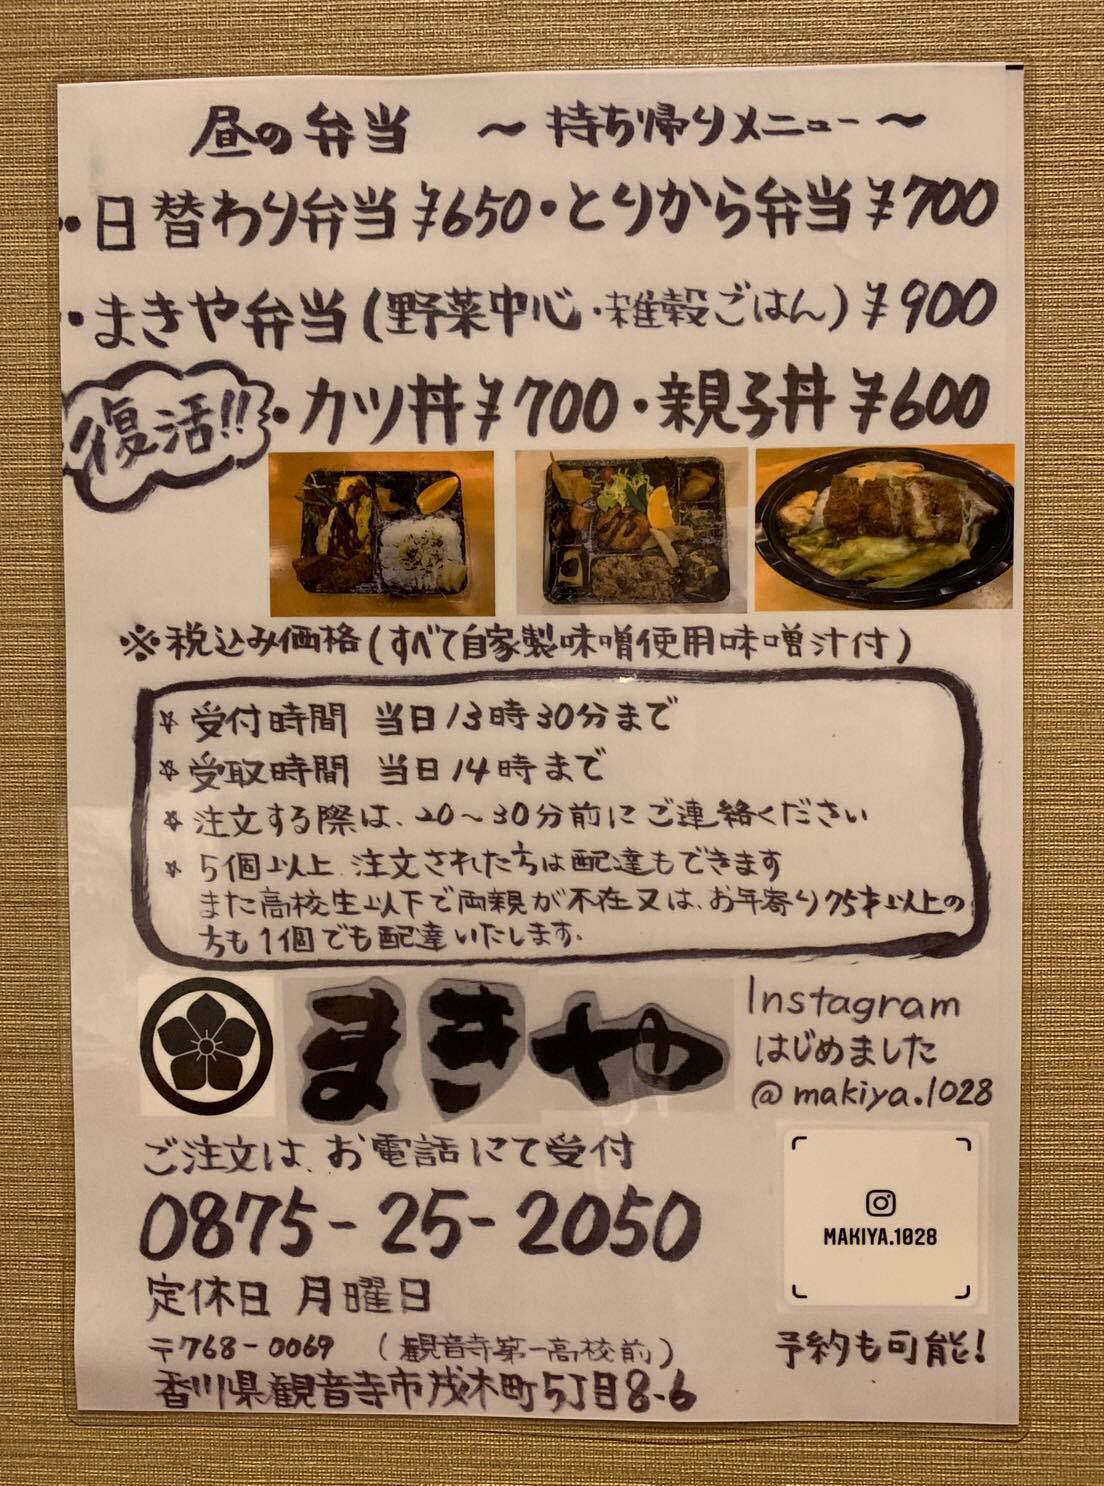 昼の弁当 ～持ち帰りメニュー～
・日替わり弁当¥650・とりから弁当¥700
・まきや弁当(野菜中心・雑穀ごはん)¥900
復活!!・カツ丼¥700・親子丼¥600
※税込み価格(すべて自家製味噌使用味噌汁付)
☆受付時間 当日13時30分まで
☆受取時間 当日14時まで
☆注文する際は、20～30分前にご連絡ください
☆5個以上注文された方は配達もできます
また高校生以下で両親が不在又は、お年寄り75才以上の
方も1個でも配達いたします.
まきや
Instagram
はじめました
@makiya.1028
ご注文は、お電話にて受付
0875-25-2050
MAKIYA.1028
定休日 月曜日
〒768-0069 (観音寺第一高校前)
香川県観音寺市茂木町5丁目8-6
予約も可能!